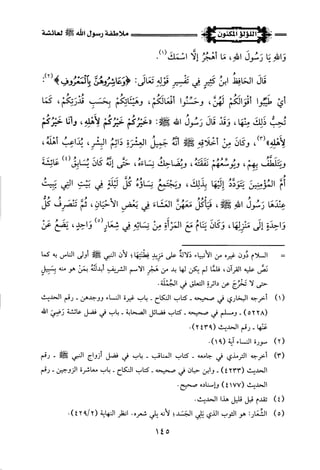 اللؤلؤ المكنون
ملاطفة رسول الله ﷺ لعائشة
وَاللهِ يَا رَسُولَ اللهِ، مَا أَهْجُرُ إِلَّا اسْمَكَ (١).
قَالَ الحَافِظُ ابنُ كَثِيرٍ فِي تَفْسِيرِ قَوْلِهِ تَعَالَى: ﴿وَعَاشِرُوهُنَّ بِالْمَعْرُوفِ﴾ (٢):
أَيْ طَيِّبُوا أَقْوَالَكُمْ لَهُنَّ، وَحَسِّنُوا أَفْعَالَكُمْ، وَهَيْئَاتِكُمْ بِحَسَبِ قُدْرَتِكُمْ، كَمَا
تُحِبُّ ذَلِكَ مِنْهَا، وَقَدْ قَالَ رَسُولُ اللهِ ﷺ: «خَيْرُكُمْ خَيْرُكُمْ لِأَهْلِهِ، وَأَنَا خَيْرُكُمْ
لِأَهْلِي» (٣)، وَكَانَ مِنْ أَخْلَاقِهِ ﷺ أَنَّهُ جَمِيلُ العِشْرَةِ دَائِمُ البِشْرِ، يُدَاعِبُ أَهْلَهُ،
وَيَتَلَطَّفُ بِهِمْ، وَيُوسِعُهُمْ نَفَقَتَهُ، وَيُضَاحِكُ نِسَاءَهُ، حَتَّى إِنَّهُ كَانَ يُسَابِقُ (٤) عَائِشَةَ
أُمَّ المُؤْمِنِينَ يَتَوَدَّدُ إِلَيْهَا بِذَلِكَ، وَيَجْتَمِعُ نِسَاؤُهُ كُلَّ لَيْلَةٍ فِي بَيْتِ التِي يَبِيتُ
عِنْدَهَا رَسُولُ اللهِ ﷺ، فَيَأْكُلُ مَعَهُنَّ العَشَاءَ فِي بَعْضِ الأَحْيَانِ، ثُمَّ تَنْصَرِفُ كُلُّ
وَاحِدَةٍ إِلَى مَنْزِلِهَا، وَكَانَ يَنَامُ مَعَ المَرْأَةِ مِنْ نِسَائِهِ فِي شِعَارٍ (٥) وَاحِدٍ، يَضَعُ عَنْ
= السلام دُون غيره من الأنبياء دَلالةٌ على مَزِيدِ فِطْنَتِهَا؛ لأن النبي ﷺ أولى الناس به كما
نَصَّ عليه القرآن، فلما لم يكن لها بد من هَجْرِ الاسم الشريف أبدَلَتْهُ بمَنْ هو منه بِسَبِيلٍ
حتى لا تَخْرُجَ عن دائرة التعلق في الجُمْلَة.
(١) أخرجه البخاري في صحيحه ـ كتاب النكاح ـ باب غيرة النساء ووجدهن ـ رقم الحديث
(٥٢٢٨) ـ ومسلم في صحيحه ـ كتاب فضائل الصحابة ـ باب في فضل عائشة رَضِيَ الله
عَنْهَا ـ رقم الحديث (٢٤٣٩).
(٢) سورة النساء آية (١٩).
(٣) أخرجه الترمذي في جامعه ـ كتاب المناقب ـ باب في فضل أزواج النبي ﷺ ـ رقم
الحديث (٤٢٣٣) ـ وابن حبان في صحيحه ـ كتاب النكاح ـ باب معاشرة الزوجين ـ رقم
الحديث (٤١٧٧) وإسناده صحيح.
(٤) تقدم قبل قليل هذا الحديث.
(٥) الشِّعَارُ: هو الثوب الذي يَلِي الجَسَدَ؛ لأنه يلي شعره. انظر النهاية (٤٢٩/٢).
١٤٥